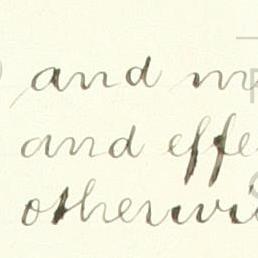 and m
and effe
otherwi